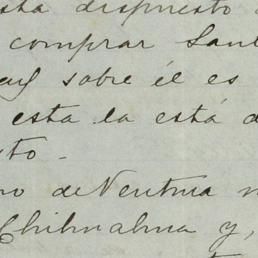 esta dispuesto
comprar
sobre él es
esta la está
to.
de Ventura
Chihuahua y,